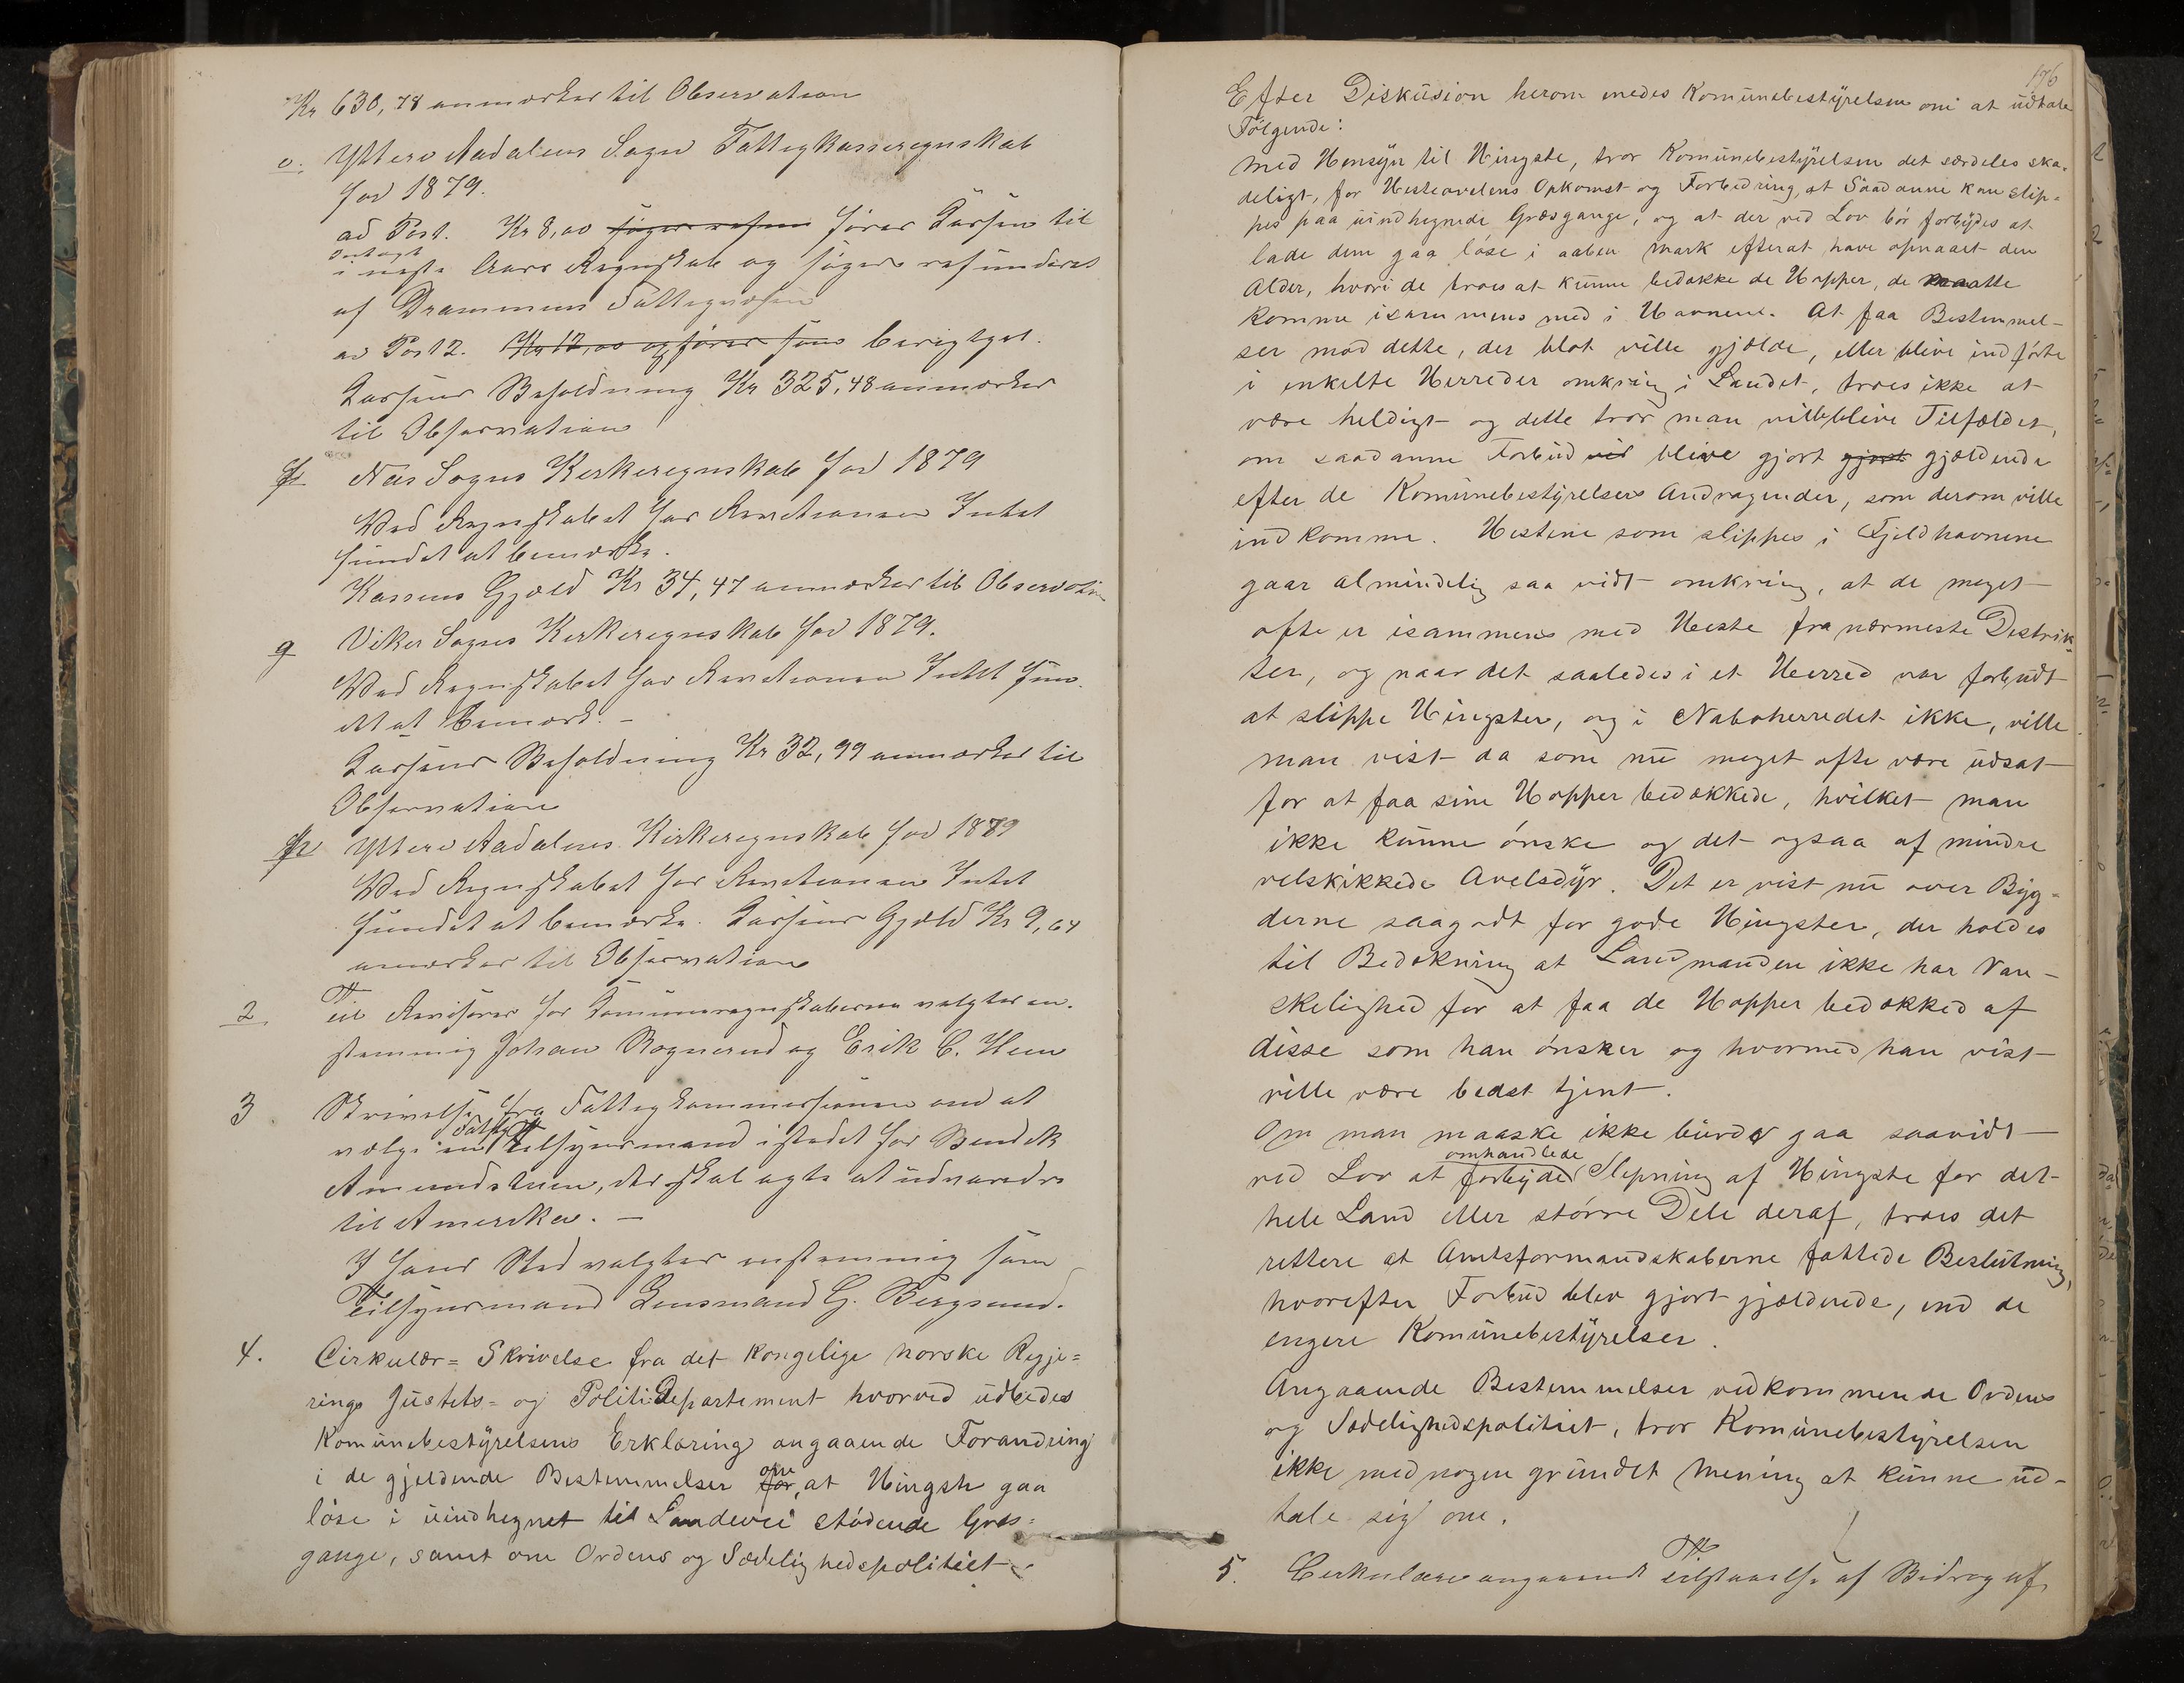 Kr 630,78 anmærkes til Observation
e. Ytters Aadalens Sogns Fattigkasseregnskab
for 1879.
ad Post. Kr 8,00 søges refun føres Kassen til
Indtægt
i næste Aars Regnskab og søges refunderet
af Drammens Fattigvæsen
ad Post 2. Kr 12,00 opføres som berigtget.
Kassens Beholdning Kr 325,48 anmærkes
til Observation
f. Næs Sogns Kirkeregnskab for 1879
Ved Regnskabet har Revisionen Intet
fundet at bemærke.
Kassens Gjæld Kr 34,47 anmærkes til Observation
g Viker Sogns Kirkeregnskab for 1879.
Ved Regnskabet har Revisionen Intet fun-
det at bemærk. –
Kassens Beholdning Kr 32,99 anmærkes til
Observation
h Ytters Aadalens Kirkeregnskab for 1879
Ved Regnskabet har Revisionen Intet
fundet at bemærke. Kassens Gjæld Kr 9,64
anmærkes til Observation
2 Til Revisorer for Komuneregnskaberne valgtes en-
stemmig Johan Rognerud og Erik C. Hem
3 Skrivelse fra Fattigkommissionen om at
Fattig
vælge en Tilsynsmand istedet for Bendik
Amundshaen, der skal agte at udvandre
til Amerika. –
I hans Sted valgtes enstemmig som
Tilsynsmand Lensmand G. Bergsund.
4. Cirkulær= Skrivelse fra det kongelige norske Regje=
rings Justits= og PolitiDepartement hvorved udbedes
Komunebestyrelsens Erklæring angaaende Forandring
om
i de gjeldende Bestemmelser for, at Hingste gaa
løse i uindhegnet til Landevei stødende Græs=
gange, samt om Ordens og Sædelighedspolitiet
176
Efter Diskusion herom enedes Komunebestyrelsen om at udtale
Følgende:
Med Hensyn til Hingste, tror Komunebestyrelsen det særdeles ska-
deligt, for Hesteavelens Opkomst og Forbedring, at Saadanne kan slip-
pes paa uindhegnede Græsgange, og at der ved Lov bør forbydes at
lade dem gaa løse i aaben Mark efterat have opnaaet den
Alder, hvori de troes at kunne bedække de Hopper, de maatte
komme isammens med i Havnene. At faa Bestemmel-
ser mod dette, der blot ville gjælde, eller blive indførte
i enkelte Herreder omkring i Landet, troes ikke at
være heldigt og dette tror man vilde blive Tilfældet,
om saadanne Forbud ved blive gjort gjort gjældende
efter de Komunebestyrelsers Andragender, som derom ville
indkomme. Hestene som slippes i Fjeldhavnene
gaar almindelig saa vidt omkring, at de meget
ofte er isammens med Heste fra nærmeste Distrik-
ter, og naar det saaledes i et Herred var forbudt
at slippe Hingster, og i Naboherredet ikke, ville
man vist da som nu meget ofte være udsat
for at faa sine Hopper bedækkede, hvilket man
ikke kunne ønske og det ogsaa af mindre
velskikkede Avelsdyr. Det er vist nu over Byg-
derne saagodt for gode Hingster, der holdes
til Bedækning at Landmanden ikke har Van-
skelighed for at faa de Hopper bedækked af
disse som han ønsker og hvormed han vist
ville være bedst tjent.
Om man maaske ikke burde gaa saavidt
omhandlede
ved Lov at forbyde Slepning af Hingste for det
hele Land eller større Dele deraf, troes det
rettere at Amtsformandskaberne fattede Beslutning,
hvorefter Forbud blev gjort gjældende, end de
engere Komunebestyrelser.
Angaaende Bestemmelser vedkommende Ordens
og Sædelighedspolitiet, tror Komunebestyrelsen
ikke med nogen grundet Mening at kunne ud-
tale sig om.
5. Cirkulære angaaende Tilstaaelse af Bidrag af